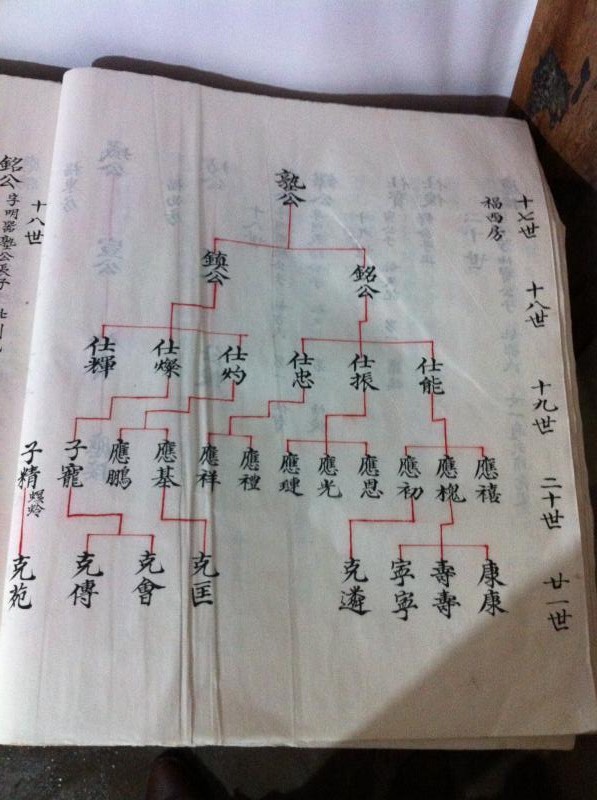 十七世
福西房
塾公
十八世
銘公
鎮公
十九世
仕能
仕振
仕忠
仕灼
仕燦
仕輝
二十世
應禧
應槐
應初
應恩
應光
應璉
應禮
應祥
應基
應鵬
子寵
子精
螟蛉
廿一世
康康
壽壽
寧寧
克遴
克匡
克會
克傳
克苑
十八世
銘公
字明器塾公長子